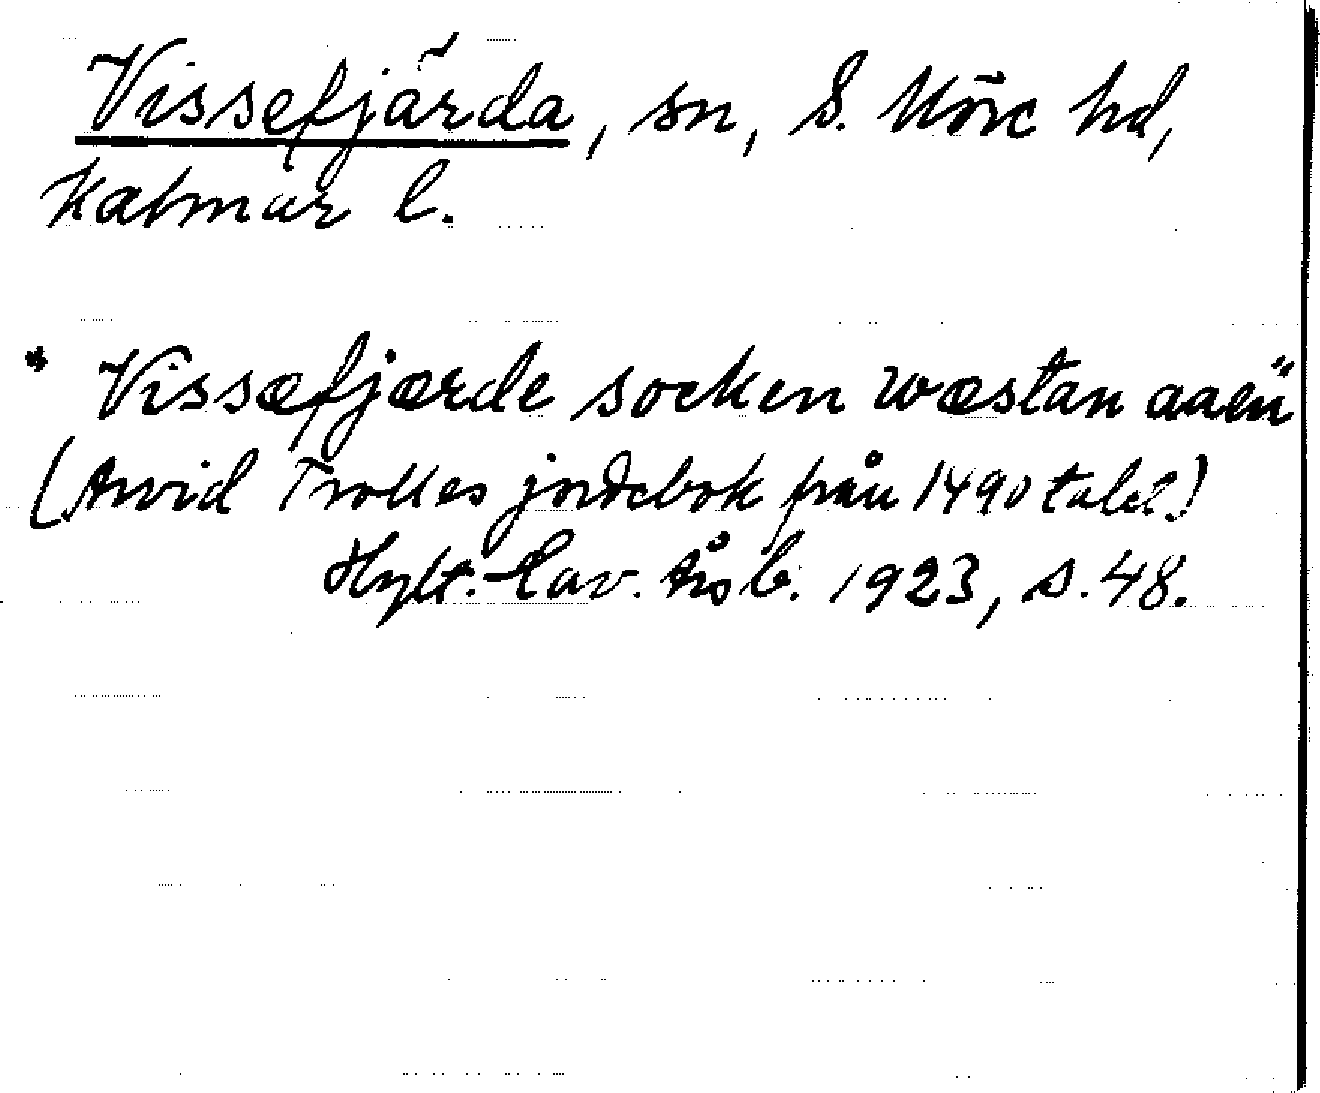 Vissefjärda, sn, S. Möre hd,
Kalmar l.
"Vissæfjærde socken wæstan aaen"
(Arvid Trolles jordebok från 1490 talet.)
Hylt.-Cav. Årsb. 1923, s. 48.